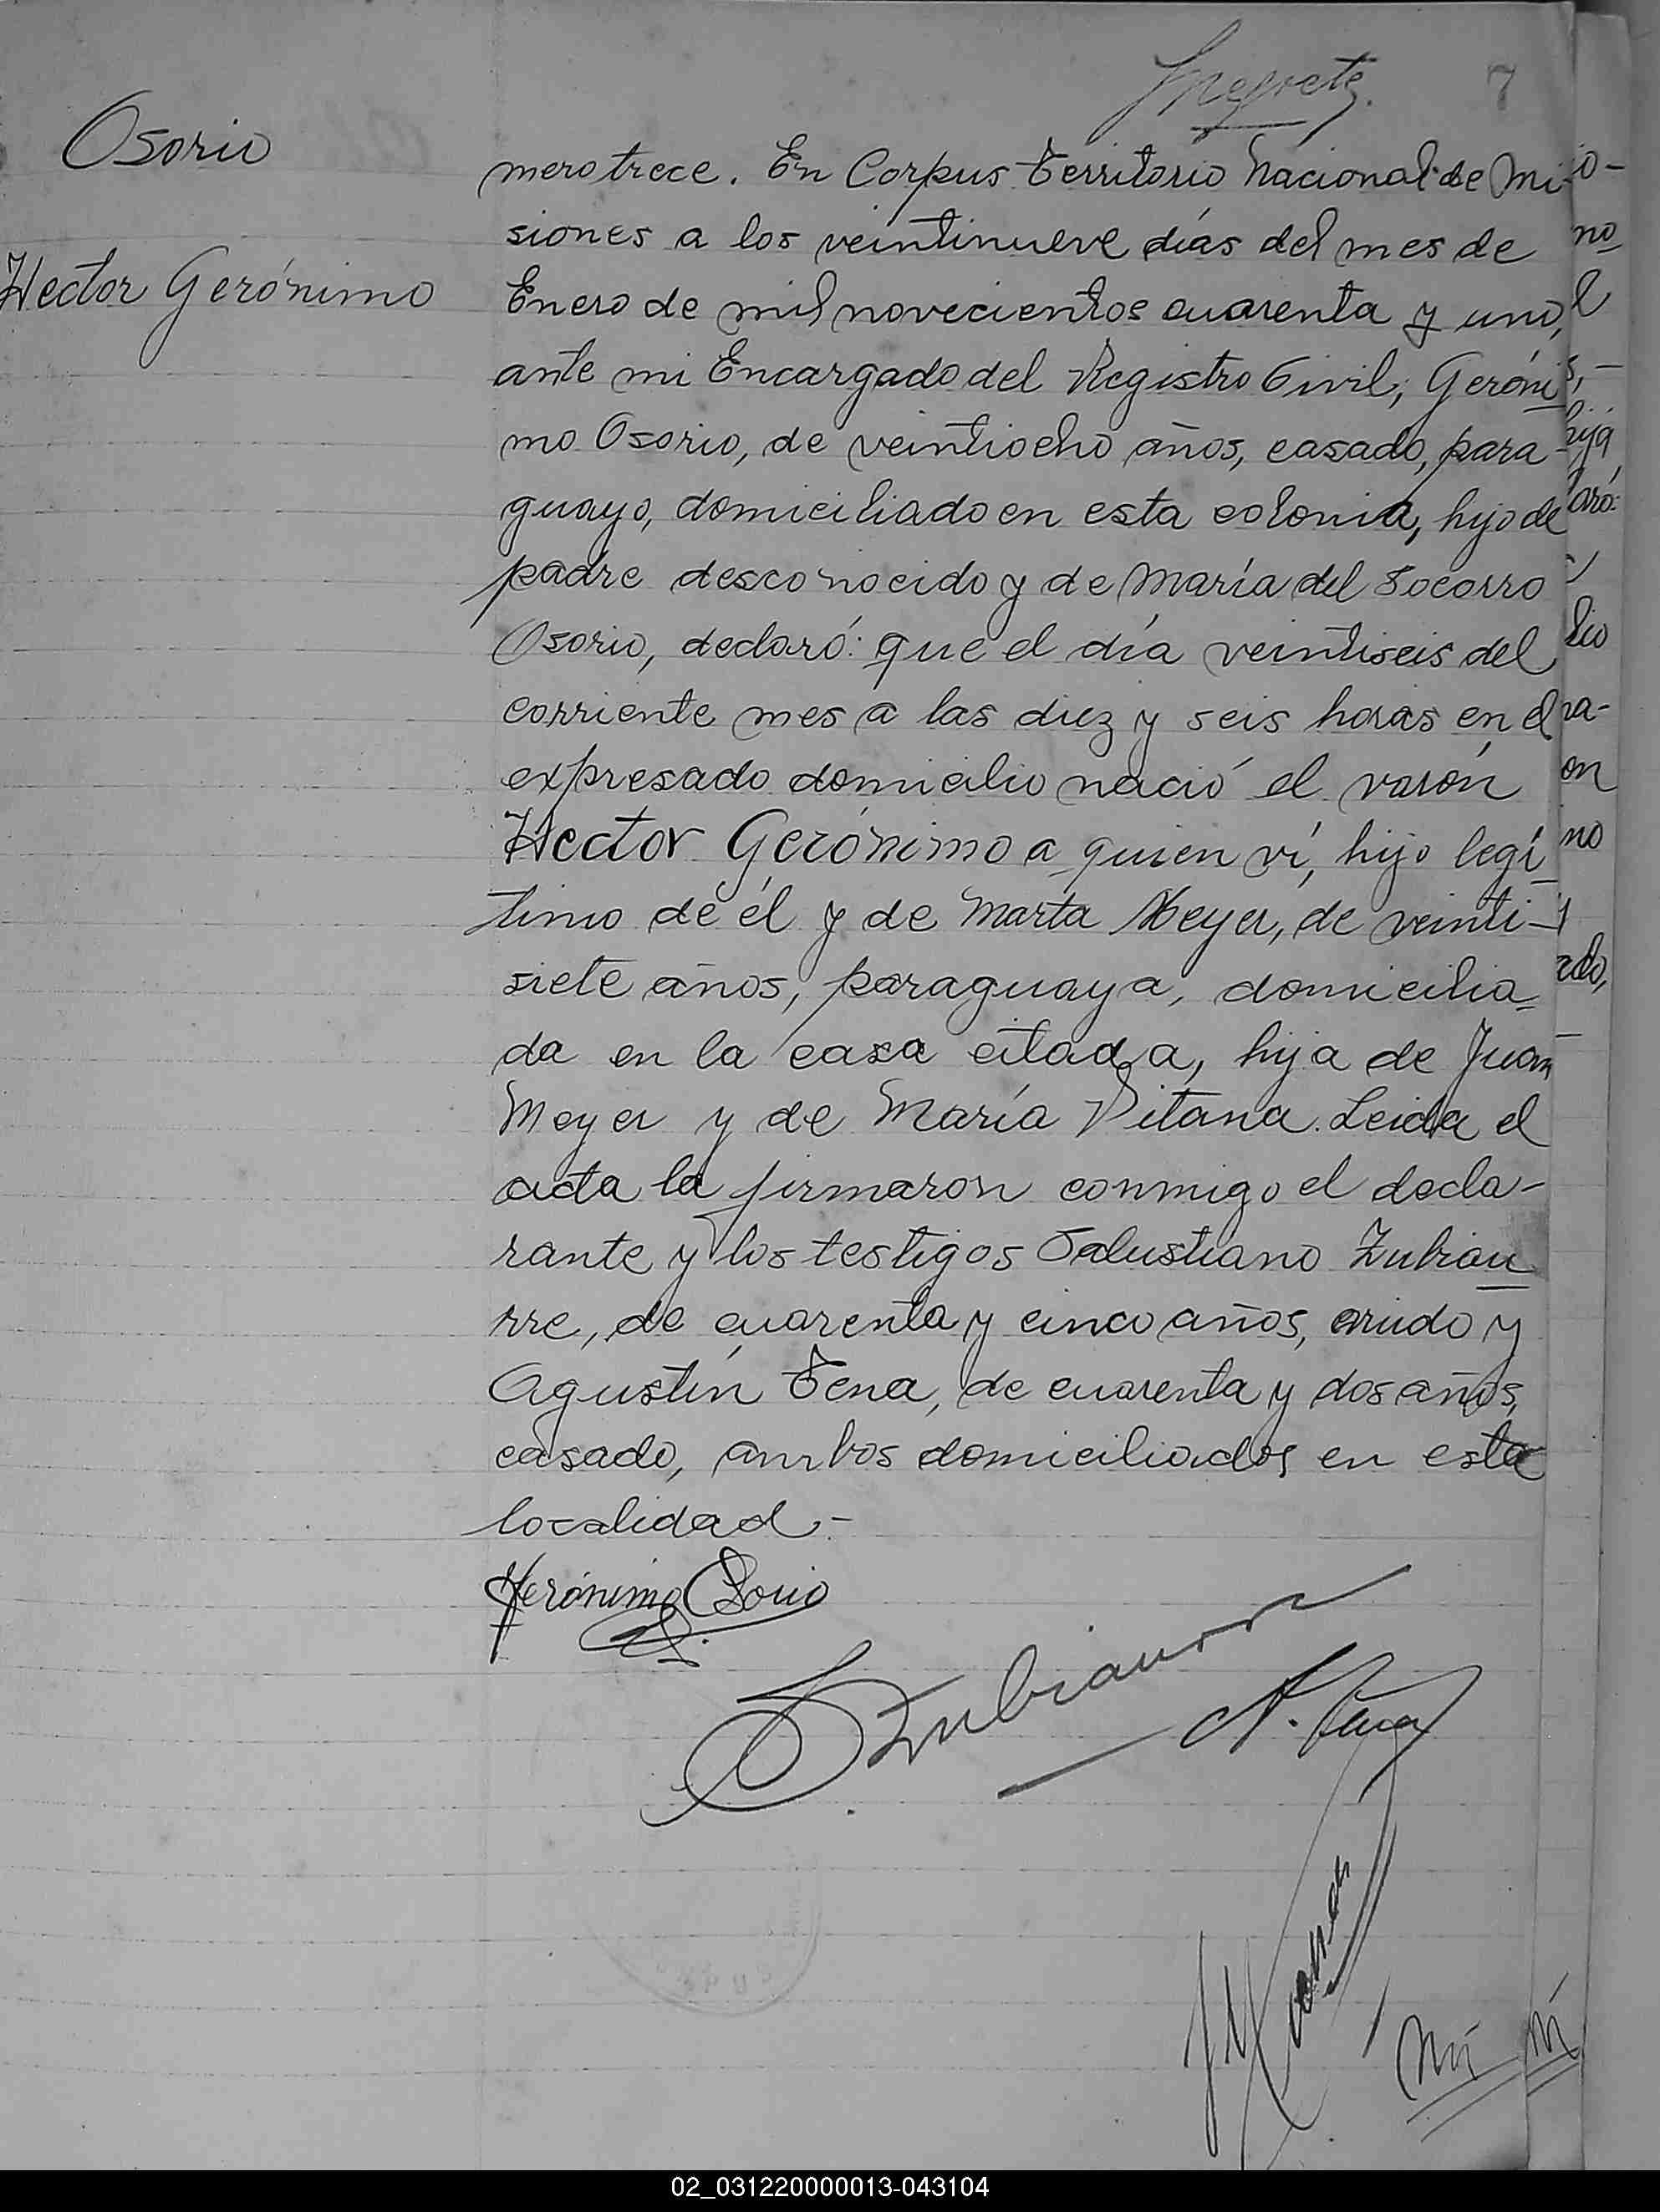 7
Osorio
Hector Gerónimo
mero trece. En Corpus Territorio Nacional de Mi-
siones a los veintinueve días del mes de
Enero de mil novecientos cuarenta y uno,
ante mi Encargado del Registro Civil, Geróni
mo Osorio, de veintiocho años, casado, para-
guayo, domiciliado en esta colonia, hijo de
padre desconocido y de María del Socorro
Osorio, declaró: que el día veintiseis del
corriente mes a las diez y seis horas en el
expresado domicilio nació el varón
Hector Gerónimo a quien ví, hijo legí
timo de él y de Marta Meyer, de veinti-
siete años, paraguaya, domicilia
da en la casa citada, hija de Juan
Meyer y de María Vitana. Leida el
acta la firmaron conmigo el decla-
rante y los testigos Salustiano Zubiau
rre, de cuarenta y cinco años, viudo y
Agustín Tena, de cuarenta y dos años,
casado, ambos domiciliados en esta
localidad.-
Gerónimo Osorio
S Zubiaurre
A. Tena
02_031220000013-043104